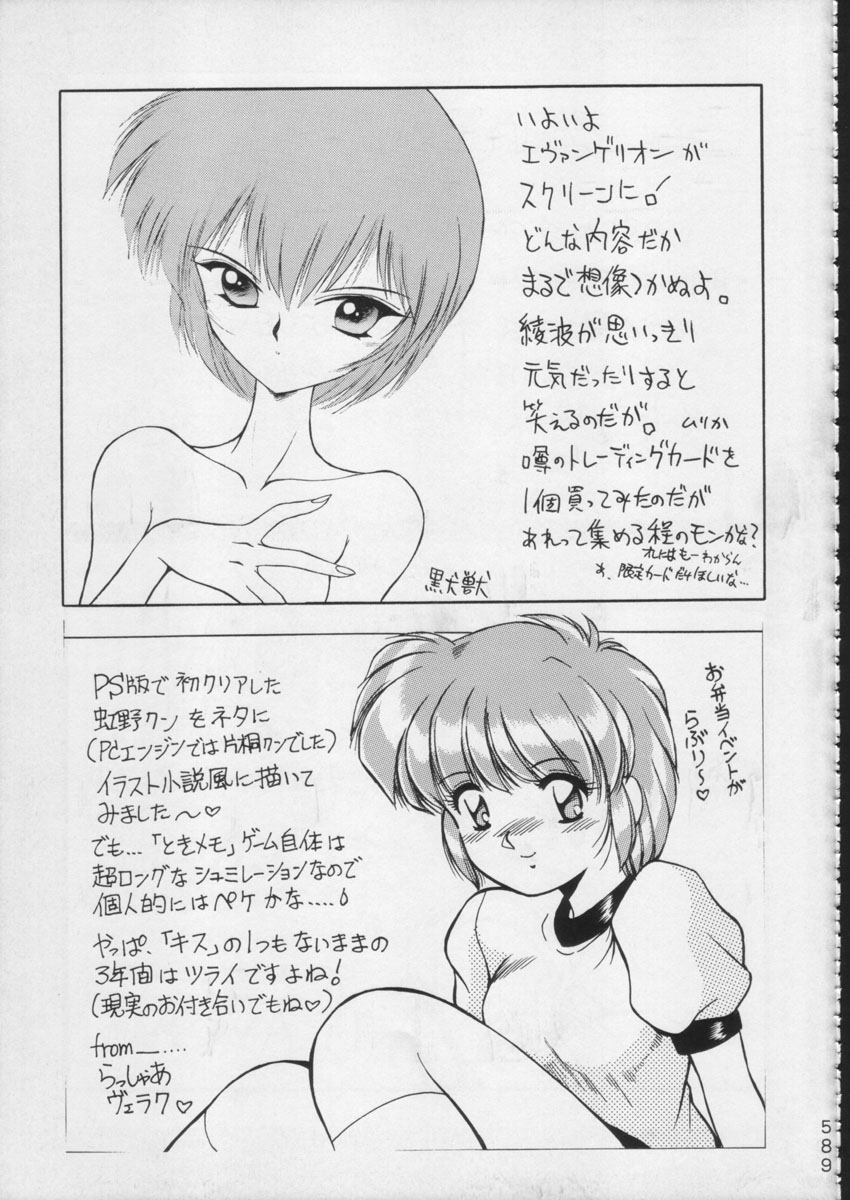 いよいよ
エヴァンゲリオンが
スクリーンに!
どんな内容だか
まるで想像つかぬよ。
綾波が思いっきり
元気だったりすると
笑えるのだが。ムリか
噂のトレーディングカードを
1個買ってみたのだが
あれって集める程のモンかな?
オレにはもーわからん
あ、限定カードだけほしいな…
黒犬獣
お弁当イベントが
らぶり〜♡
PS版で初クリアした
虹野クンをネタに
(PCエンジンでは片桐クンでした)
イラスト小説風に描いて
みました〜♡
でも…「ときメモ」ゲーム自体は
超ロングなシュミレーションなので
個人的にはペケかな……
やっぱ、「キス」の1つもないままの
3年間はツライですよね!
(現実のお付き合いでもね♡)
from_....
らっしゃあ
ヴェラク♡
589